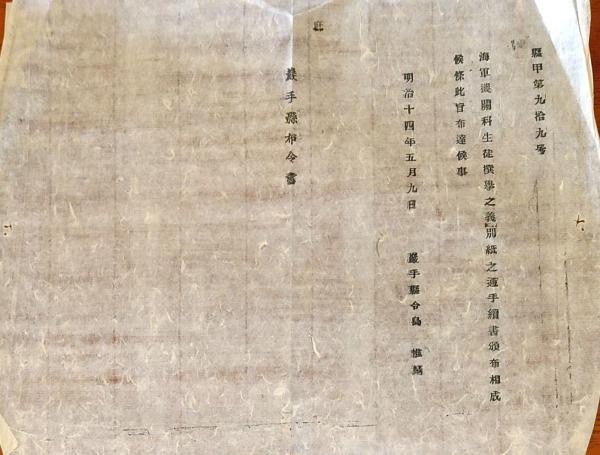 縣甲第九拾九号
海軍機關科生徒撰擧之義別紙之通手續書頒布相成
候條此旨布達候事
明治十四年五月九日
巖手縣令島 惟精
巖手縣布令書